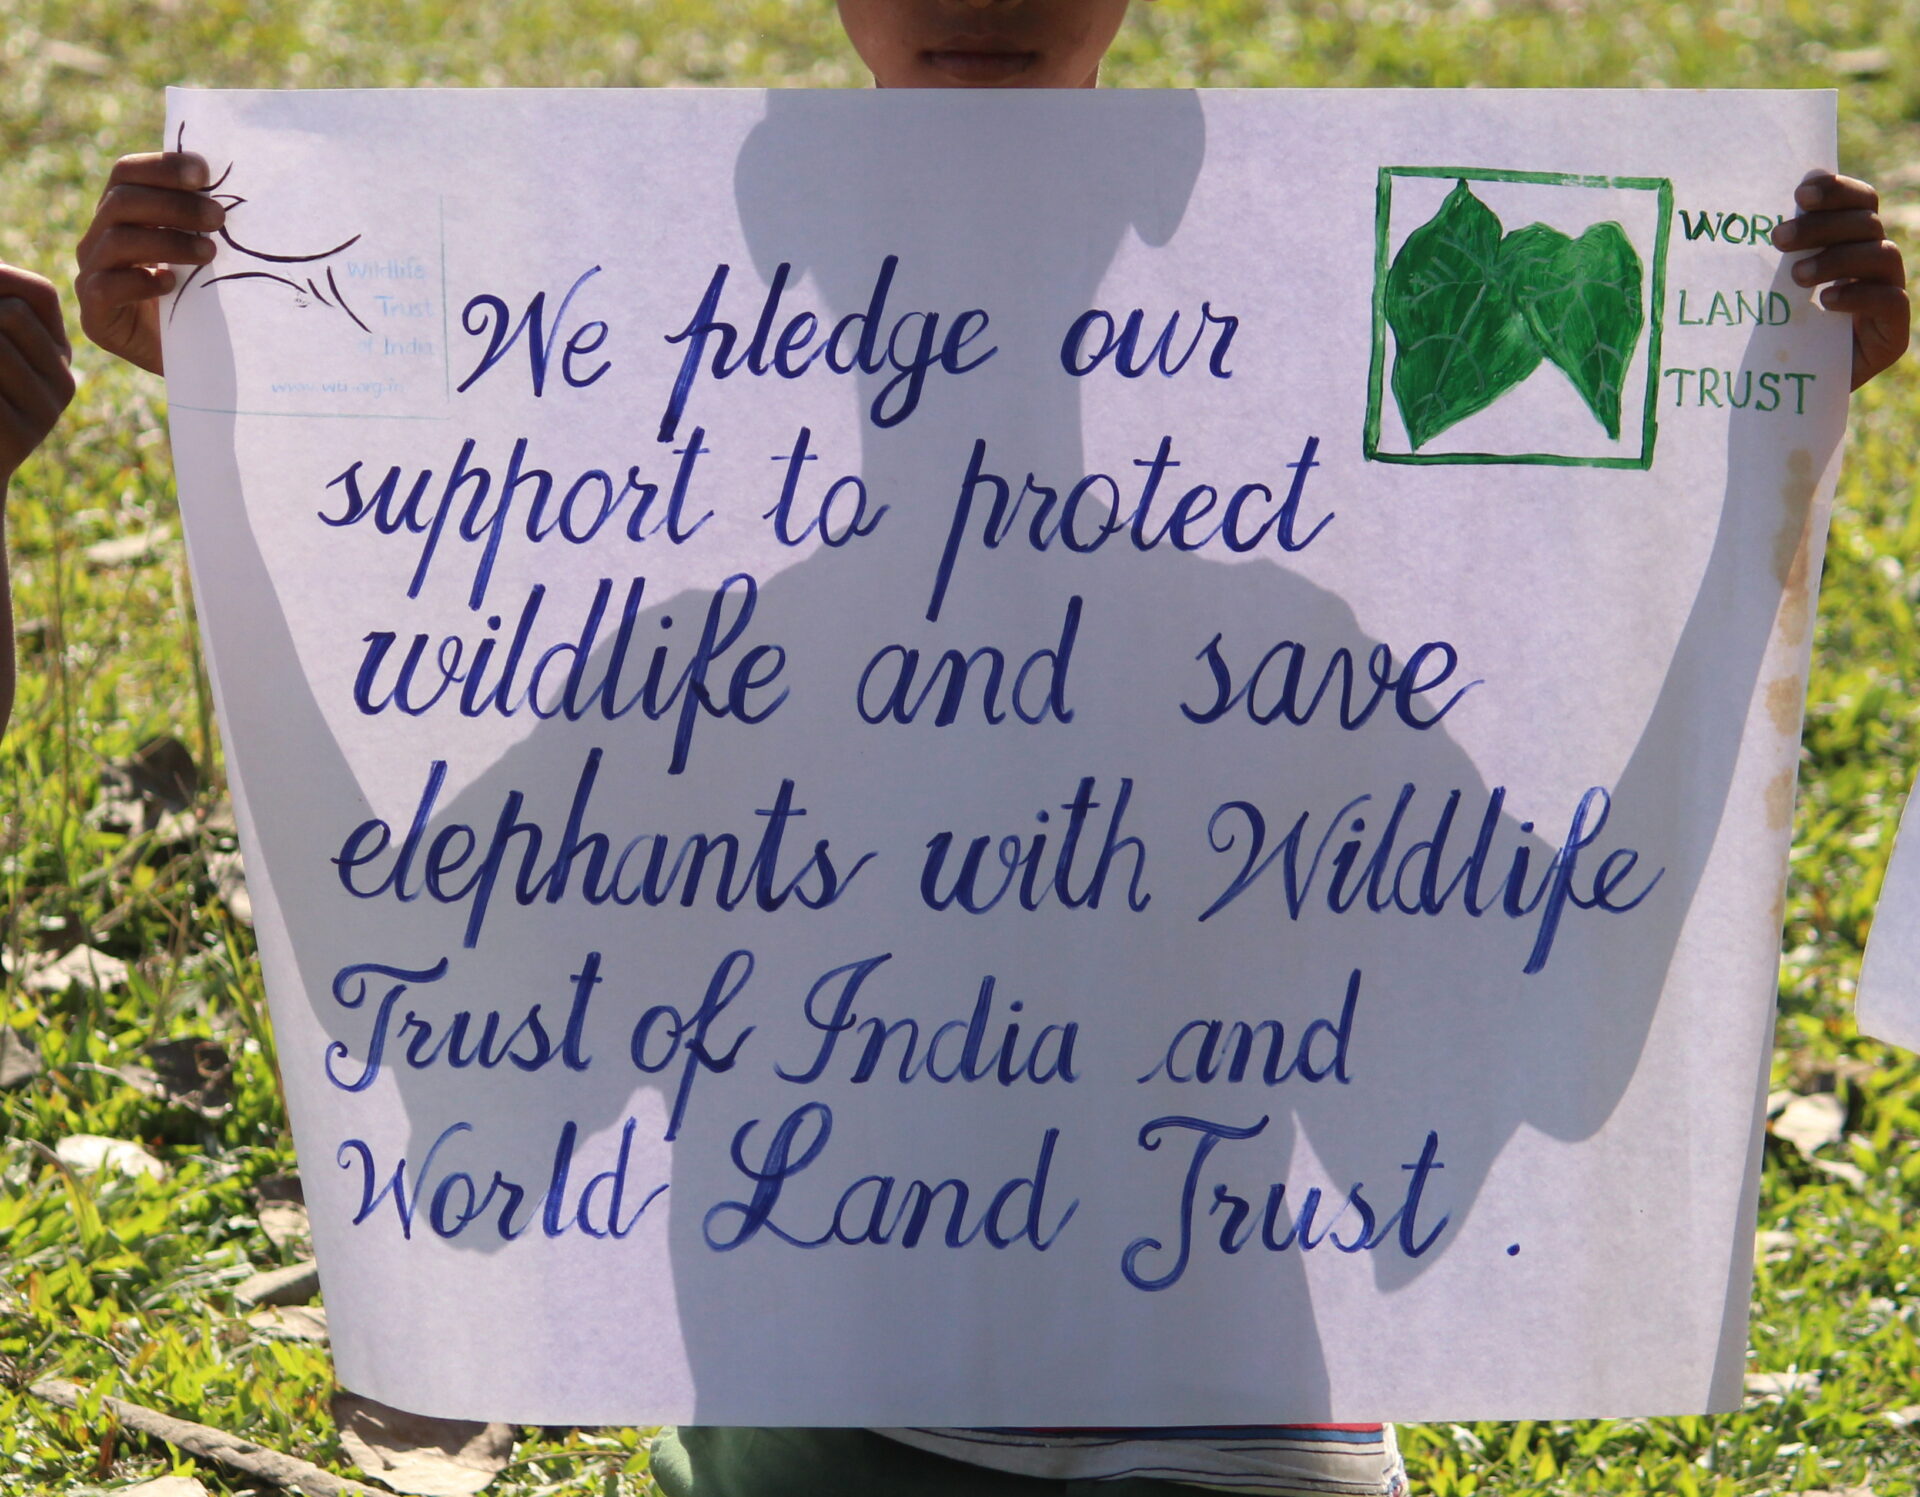 Wildlife
Trust
of India
www.wti.org.in
WOR
LAND
TRUST
We pledge our
support to protect
wildlife and save
elephants with Wildlife
Trust of India and
World Land Trust .